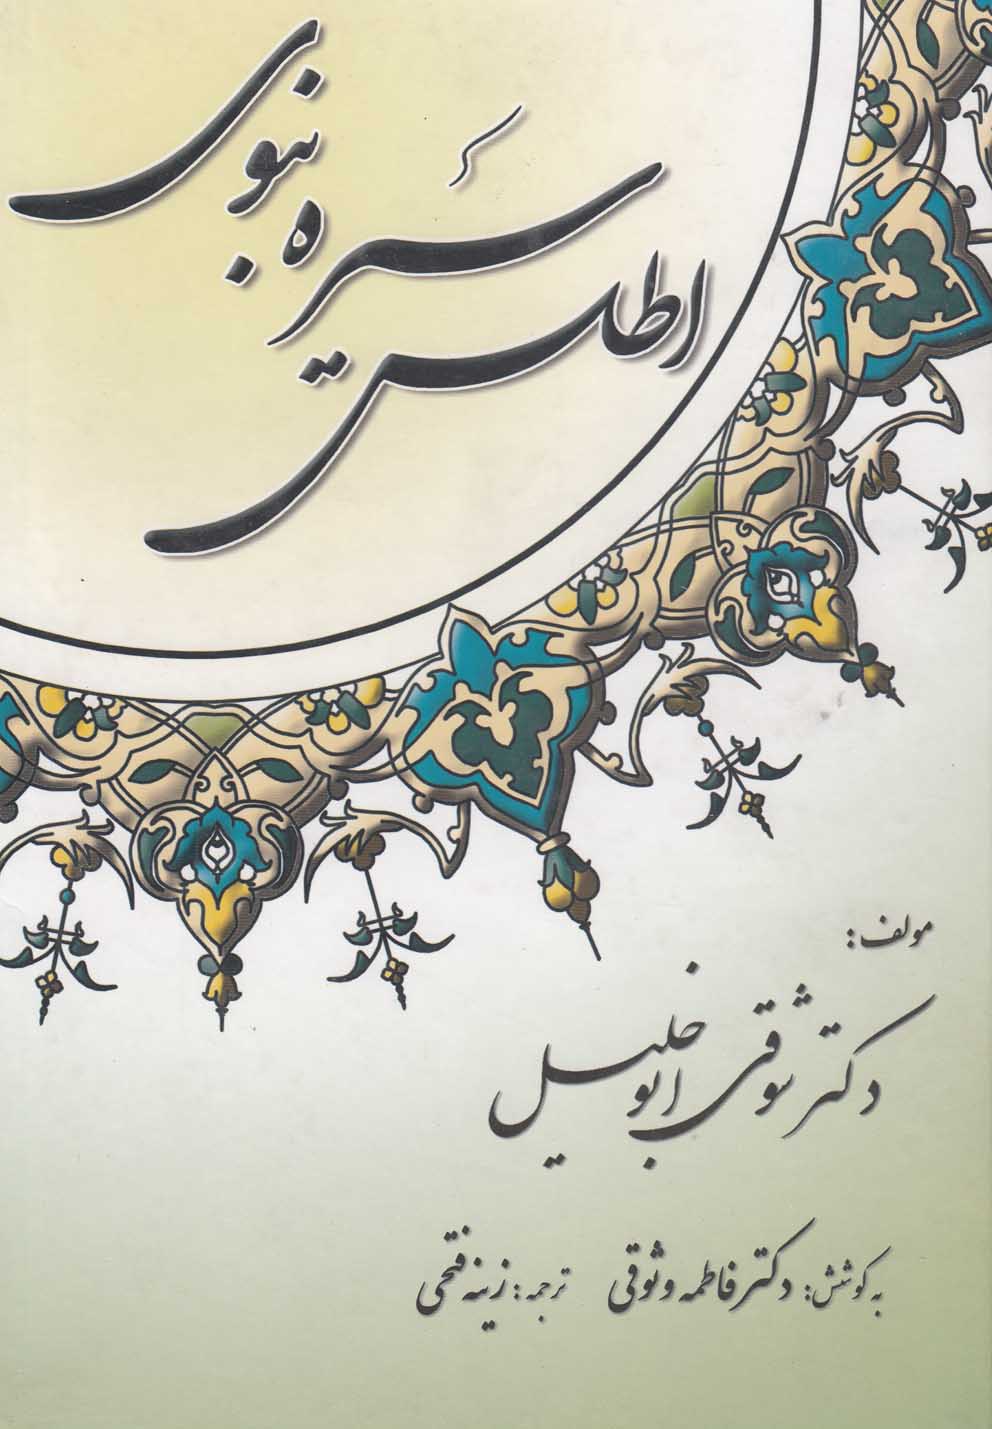 اطلس
سیره نبوی
مولف:
دکتر شوقی ابوخلیل
به کوشش: دکتر فاطمه وثوقی ترجمه: زینه فتحی